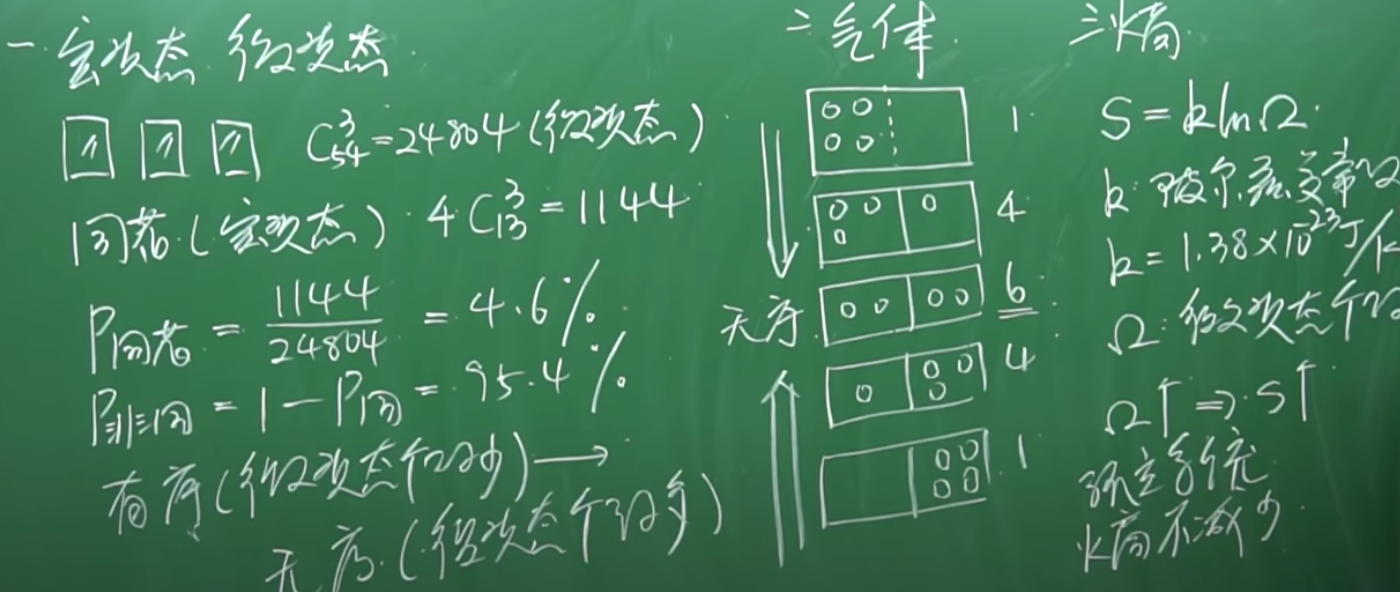 一 宏观态 微观态
C³₅₄=24804(微观态)
同花(宏观态) 4C³₁₃=1144
P同花 = 1144/24804 = 4.6%
P非同 = 1-P同 = 95.4%
有序(微观态个数少)→
无序(微观态个数多)
二 气体
1
4
无序 6
4
1
三 熵
S=klnΩ
k:玻尔兹曼常数
k=1.38×10⁻²³J/k
Ω:微观态个数
Ω↑⇒S↑
孤立系统
熵不减少